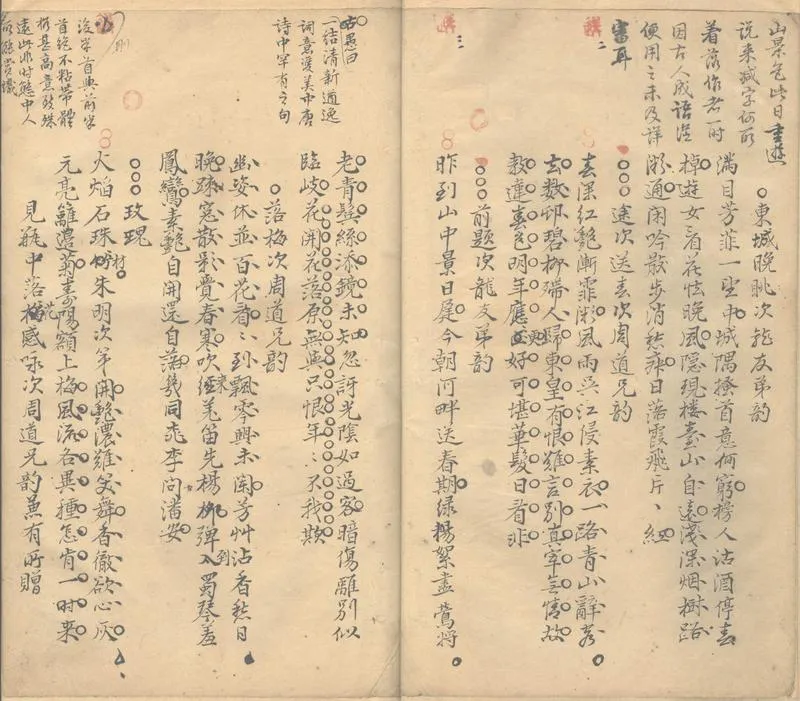 山景色此日重遊
説来減字何所
着落作者一時
因古人成語從
便用之未及詳
審耳
東城晚眺次龍友弟韵
滿目芳菲一望中城隅搔首意何窮榜人沽酒停春
棹遊女看花怯晚風隱現樓臺山自遠淺深烟樹路
漸通閑吟散步消愁寂日落霞飛片、紅
途次送春次周道兄韵
春深紅艷漸霏微風雨吴江侵素衣一路青山辭
去数邨碧柳帶人歸東皇有恨難言別真宰無情故
教違春色明年應更好可堪華髮日看非
前題次龍友弟韵
昨到山中景日尾今朝河畔送春期绿楊絮盡鶯将
老青鬓絲添鏡未知忽訝光陰如過客暗傷離別似
臨歧花開花落原無與只恨年、不我欺
落梅次周道兄韵
幽姿休並百花看、到飄零興未闌芳艸沾香愁日
晚珠宮散影覺春寒吹来羌笛先楊柳彈入蜀琴羞
鳳鸞素艷自開還自落幾同桃李問潘安
玫瑰
火焰石珠朱明次第開艷濃難笑舞香徹欲心灰
元亮籬邊菊壽陽額上梅風流各異種怎肯一時来
見瓶中落花感咏次周道兄韵兼有所贈
愚曰
一结清新遒逸
詞意爱美市唐
诗中罕有之句
刪
後半首與前半
首絕不粘帶體
格甚高意致殊
遠此非時態中人
所能賞識
二
三